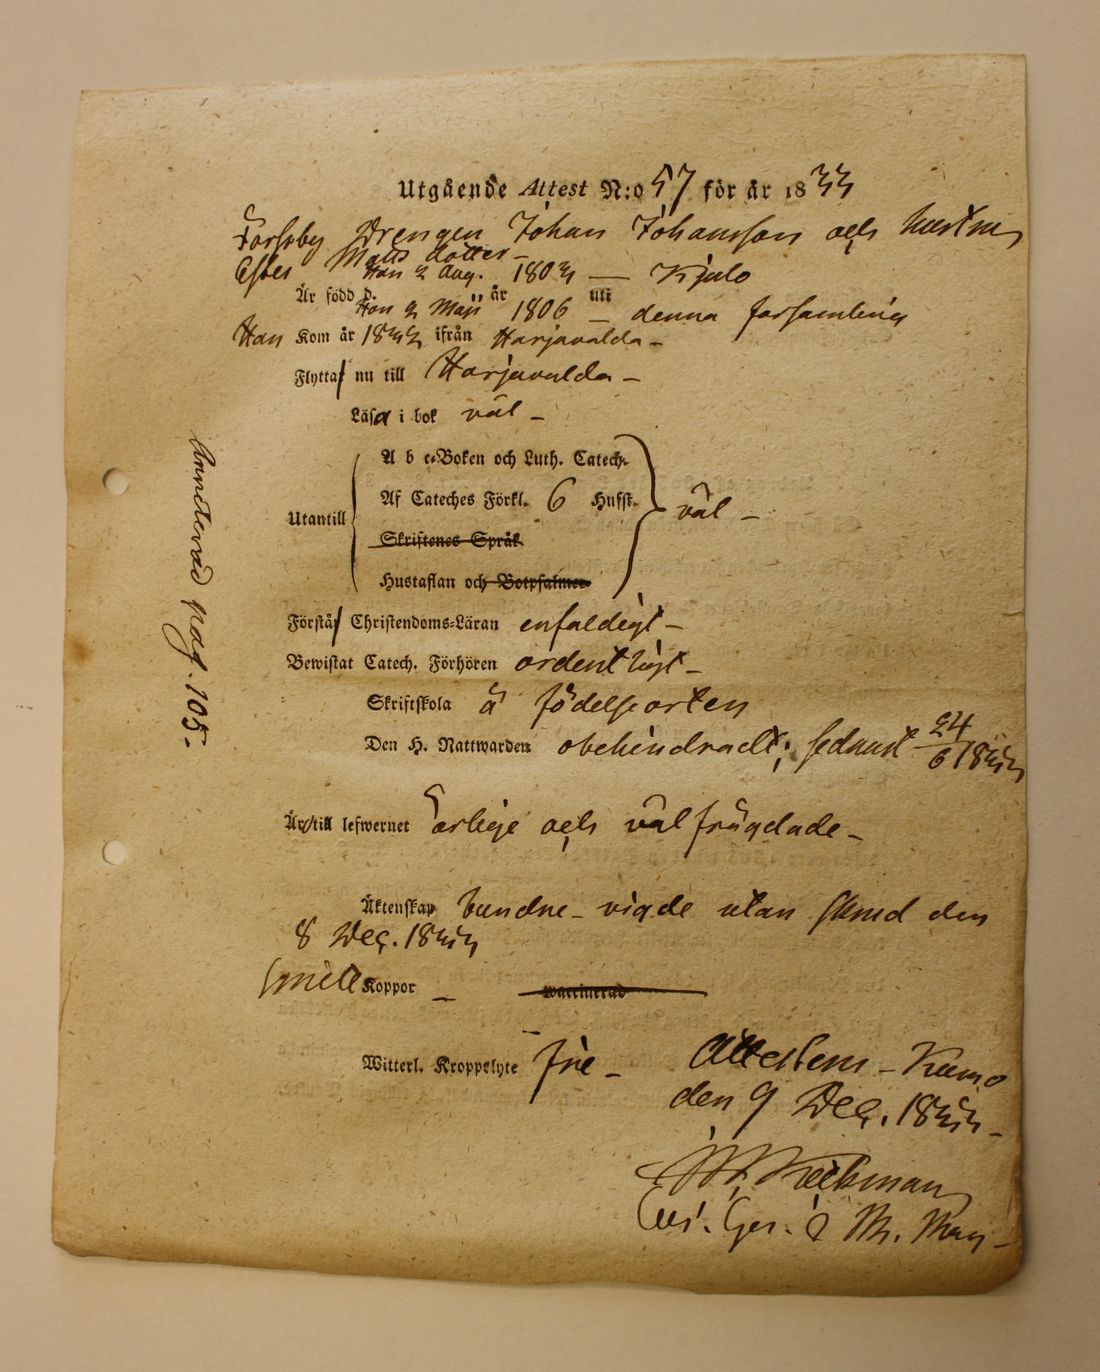 Utgående Attest N:o 57 för år 1833
Forsby Drengen Johan Johansson och hustru
Ester Mats dotter –
Han 2 Aug. 1803 — Kjulo
Är född d. år uti
Hon 2 Maji 1806 – denna församling
Han Kom år 1832 ifrån Harjavalda –
Flyttar nu till Harjavalda –
Läsa i bok väl –
A b c-Boken och Luth. Catech.
Af Cateches Förkl. 6 Hufst.
Utantill väl –
Skriftenes Språk
Hustaflan och Botpsalmer
Förstår Christendoms-Läran enfaldigt –
Bewistat Catech. Förhören ordentligt –
Skriftskola å födelseorten
Den H. Nattwarden obehindradt; sednast 24/6 1833
Är till lefwernet ärlige och välfrägdade –
Äktenskap bundne – vigde utan skuld den
8 Dec. 1833
Smitt Koppor – waccinerad
Witterl. Kroppslyte frie –
Attesteras – Kumo
den 9 Dec. 1833 –
Annoterad pag. 105.